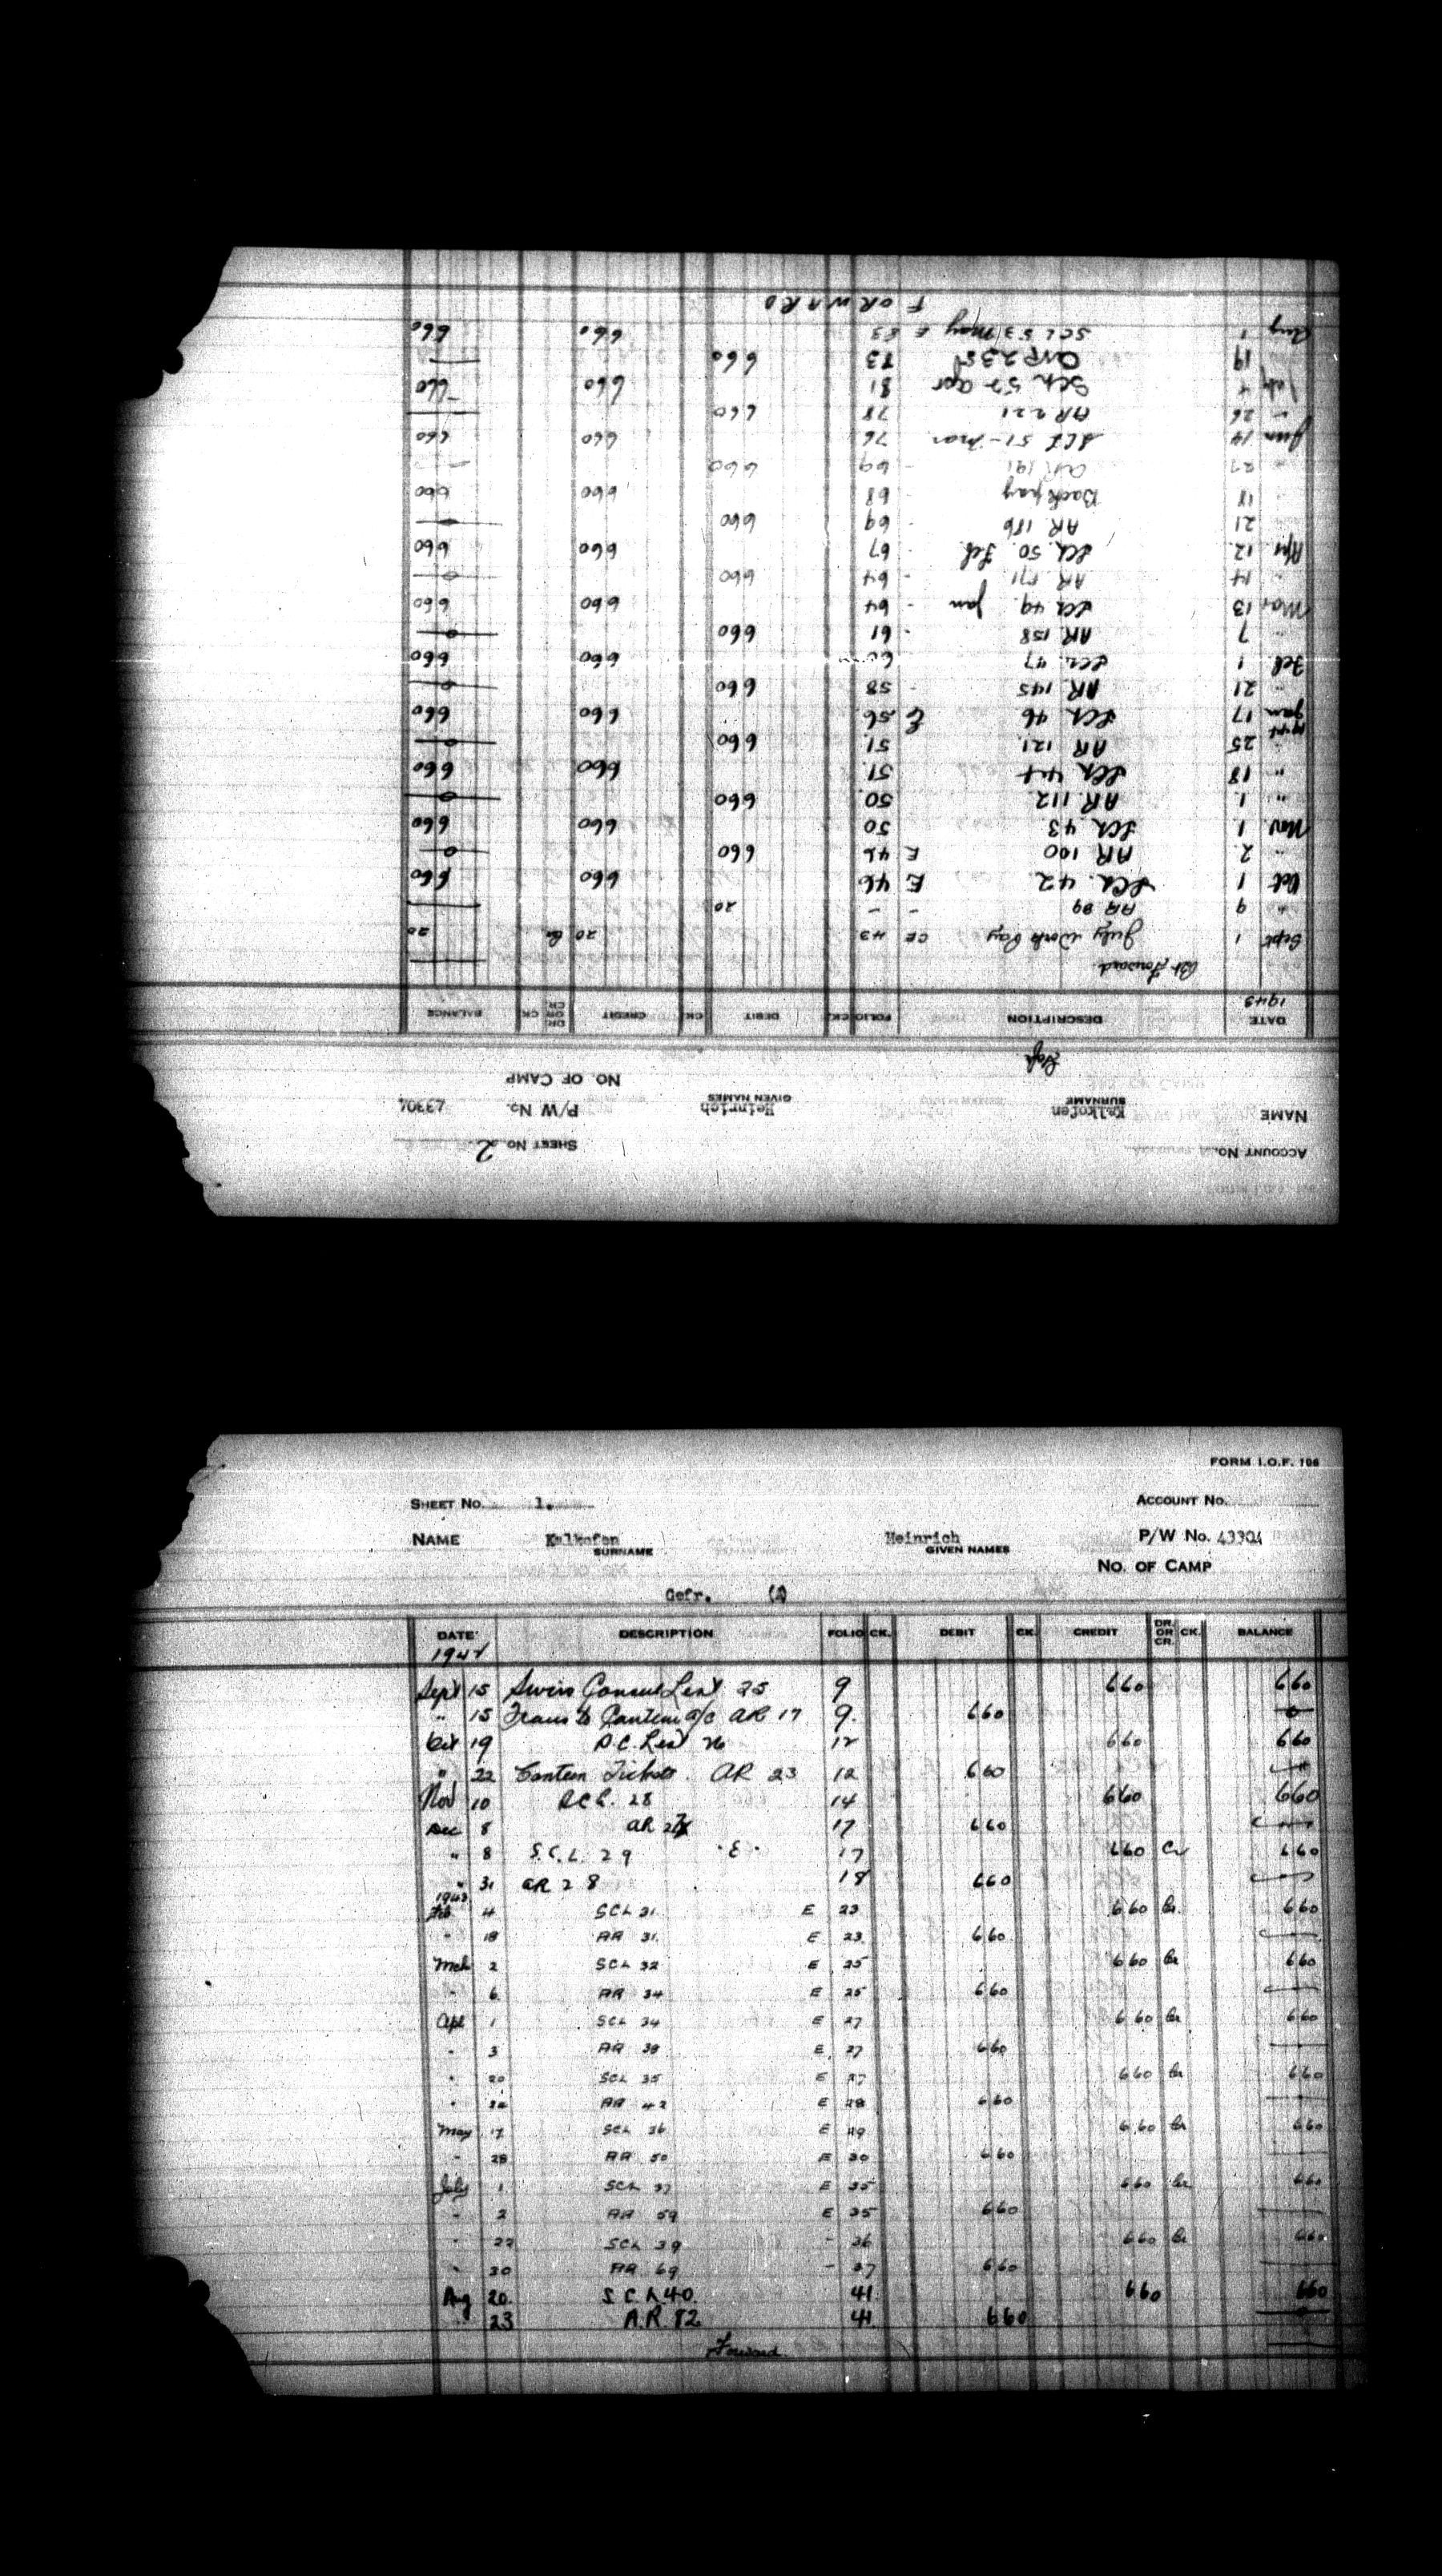 FORWARD
Aug 1 SCL 53 May E 83 660 660
19 AR 235 83 660
July 4 SCL 52 Apr 81 660 660
" 26 AR 221 78 660
Jun 14 SCL 51 - Mar 76 660 660
" 27 AR 191 - 69 660
18 Back pay - 68 660 660
21 AR 186 - 69 660
Apr 12 SCL 50. Feb. - 67 660 660
" 14 AR 171 - 64 660
Mar 13 SCL 49. Jan - 64 660 660
" 7 AR 158 - 61 660
Feb 1 SCL 47 660 660
" 21 AR 145 - 58 660
Jan 17 SCL 46 E 56 660 660
1944
" 25 AR 121. 51. 660
" 18 SCL 44 51. 660 660
" 1. AR 112 50. 660
Nov 1 SCL 43 50 660 660
" 2. AR 100 E 46 660
Oct 1 SCL. 42. E 46 660 660
" 9 AR 89 - - 20
Sept 1 July Work Pay CE 43 20 Cr 20
Bt. Forward.
1943
DATE DESCRIPTION FOLIO CK. DEBIT CK. CREDIT DR. OR CR. CK. BALANCE
Gefr
NO. OF CAMP
NAME Kalkofen SURNAME Heinrich GIVEN NAMES P/W No. 43304
ACCOUNT No. SHEET No. 2
FORM I.O.F. 106
SHEET No. 1. ACCOUNT No.
NAME Kalkofen Heinrich P/W No. 43304
SURNAME GIVEN NAMES
No. OF CAMP
Gefr. (2)
DATE DESCRIPTION FOLIO CK. DEBIT CK. CREDIT DR. OR CR. CK. BALANCE
1942
Sept 15 Swiss Consul List 25 9 660 660
" 15 Trans to Canteen a/c AR 17 9. 660 0
Oct 19 S.C. List 26 12 660 660
" 22 Canteen Tickets. AR 23 12 660
Nov 10 SCL. 28 14 660 660
Dec 8 AR 17 660
" 8 S.C.L. 29 . E . 17 660 Cr 660
" 31 AR 28 18 660
1943
Feb 4 SCL 31 E 23 660 Cr. 660
" 18 AR 31. E 23 660
Mch 2 SCL 32 E 25 660 Cr 660
" 6 AR 34 E 25 660
Apl 1 SCL 34 E 27 660 Cr 660
" 3 AR 38 E. 27 660
" 20 SCL 35 E 27 660 Cr 660
" AR 42 E 28 660
May 17 SCL 36 E 29 660 Cr 660
" 28 AR 50 E 30 660
July 1 SCL 37 E 35 660 Cr 660
" 2 AR 59 E 35 660
" 22 SCL 39 - 36 660 Cr 660
" 30 AR 69 - 37 660
Aug 20. S.C.L 40. 41 660 660
" 23 A.R. 82 41. 660 0
Forward.